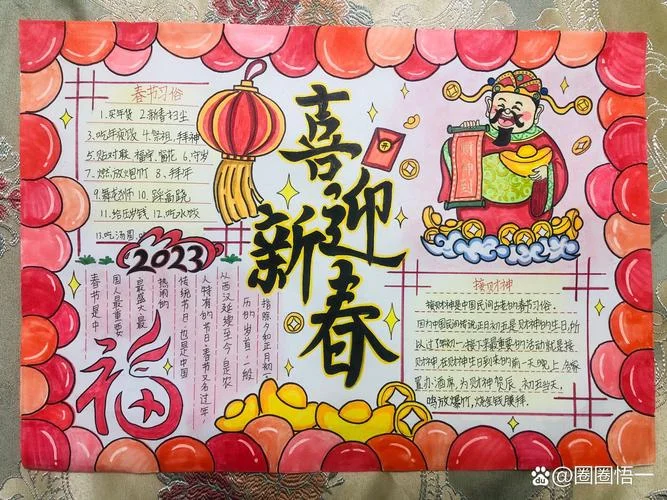 春节习俗
1.买年货 2.新春扫尘
3.吃年夜饭 4.祭祖、拜神
5.贴对联、福字、窗花 6.守岁
7.燃放爆竹 8.拜年
9.舞龙舞狮 10.踩高跷
11.给压岁钱 12.吃水饺
13.吃汤圆
2023
喜迎
新春
财神到
春节是中
国人最重要
最盛大最
热闹的
传统节日,也是中国
人特有的节日。春节又名过年,
从西汉延续至今,是农
历的岁首,一般
指除夕和正月初一
福
接财神
接财神是中国民间古老的春节习俗。
因为中国民间传说正月初五是财神的生日,所
以过了年初一,接下来最重要的活动就是接
财神,在财神生日到来的前一天晚上,各家
置办酒席,为财神贺辰,初五当天,
鸣放爆竹,烧金钱膜拜。
du @圈圈悟一